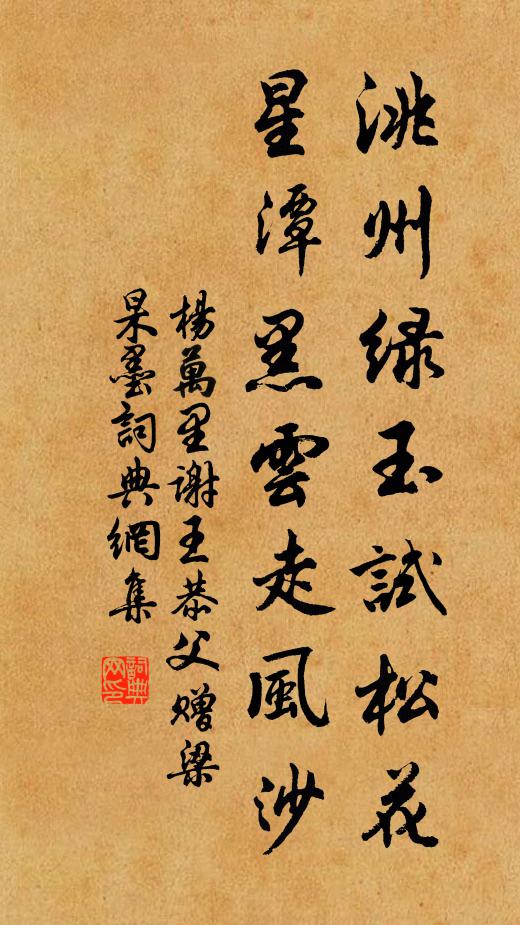 洮州綠玉試松花
星潭黑雲走風沙
楊萬里謝王恭父贈梁
杲墨詞典網集
詞典
网印